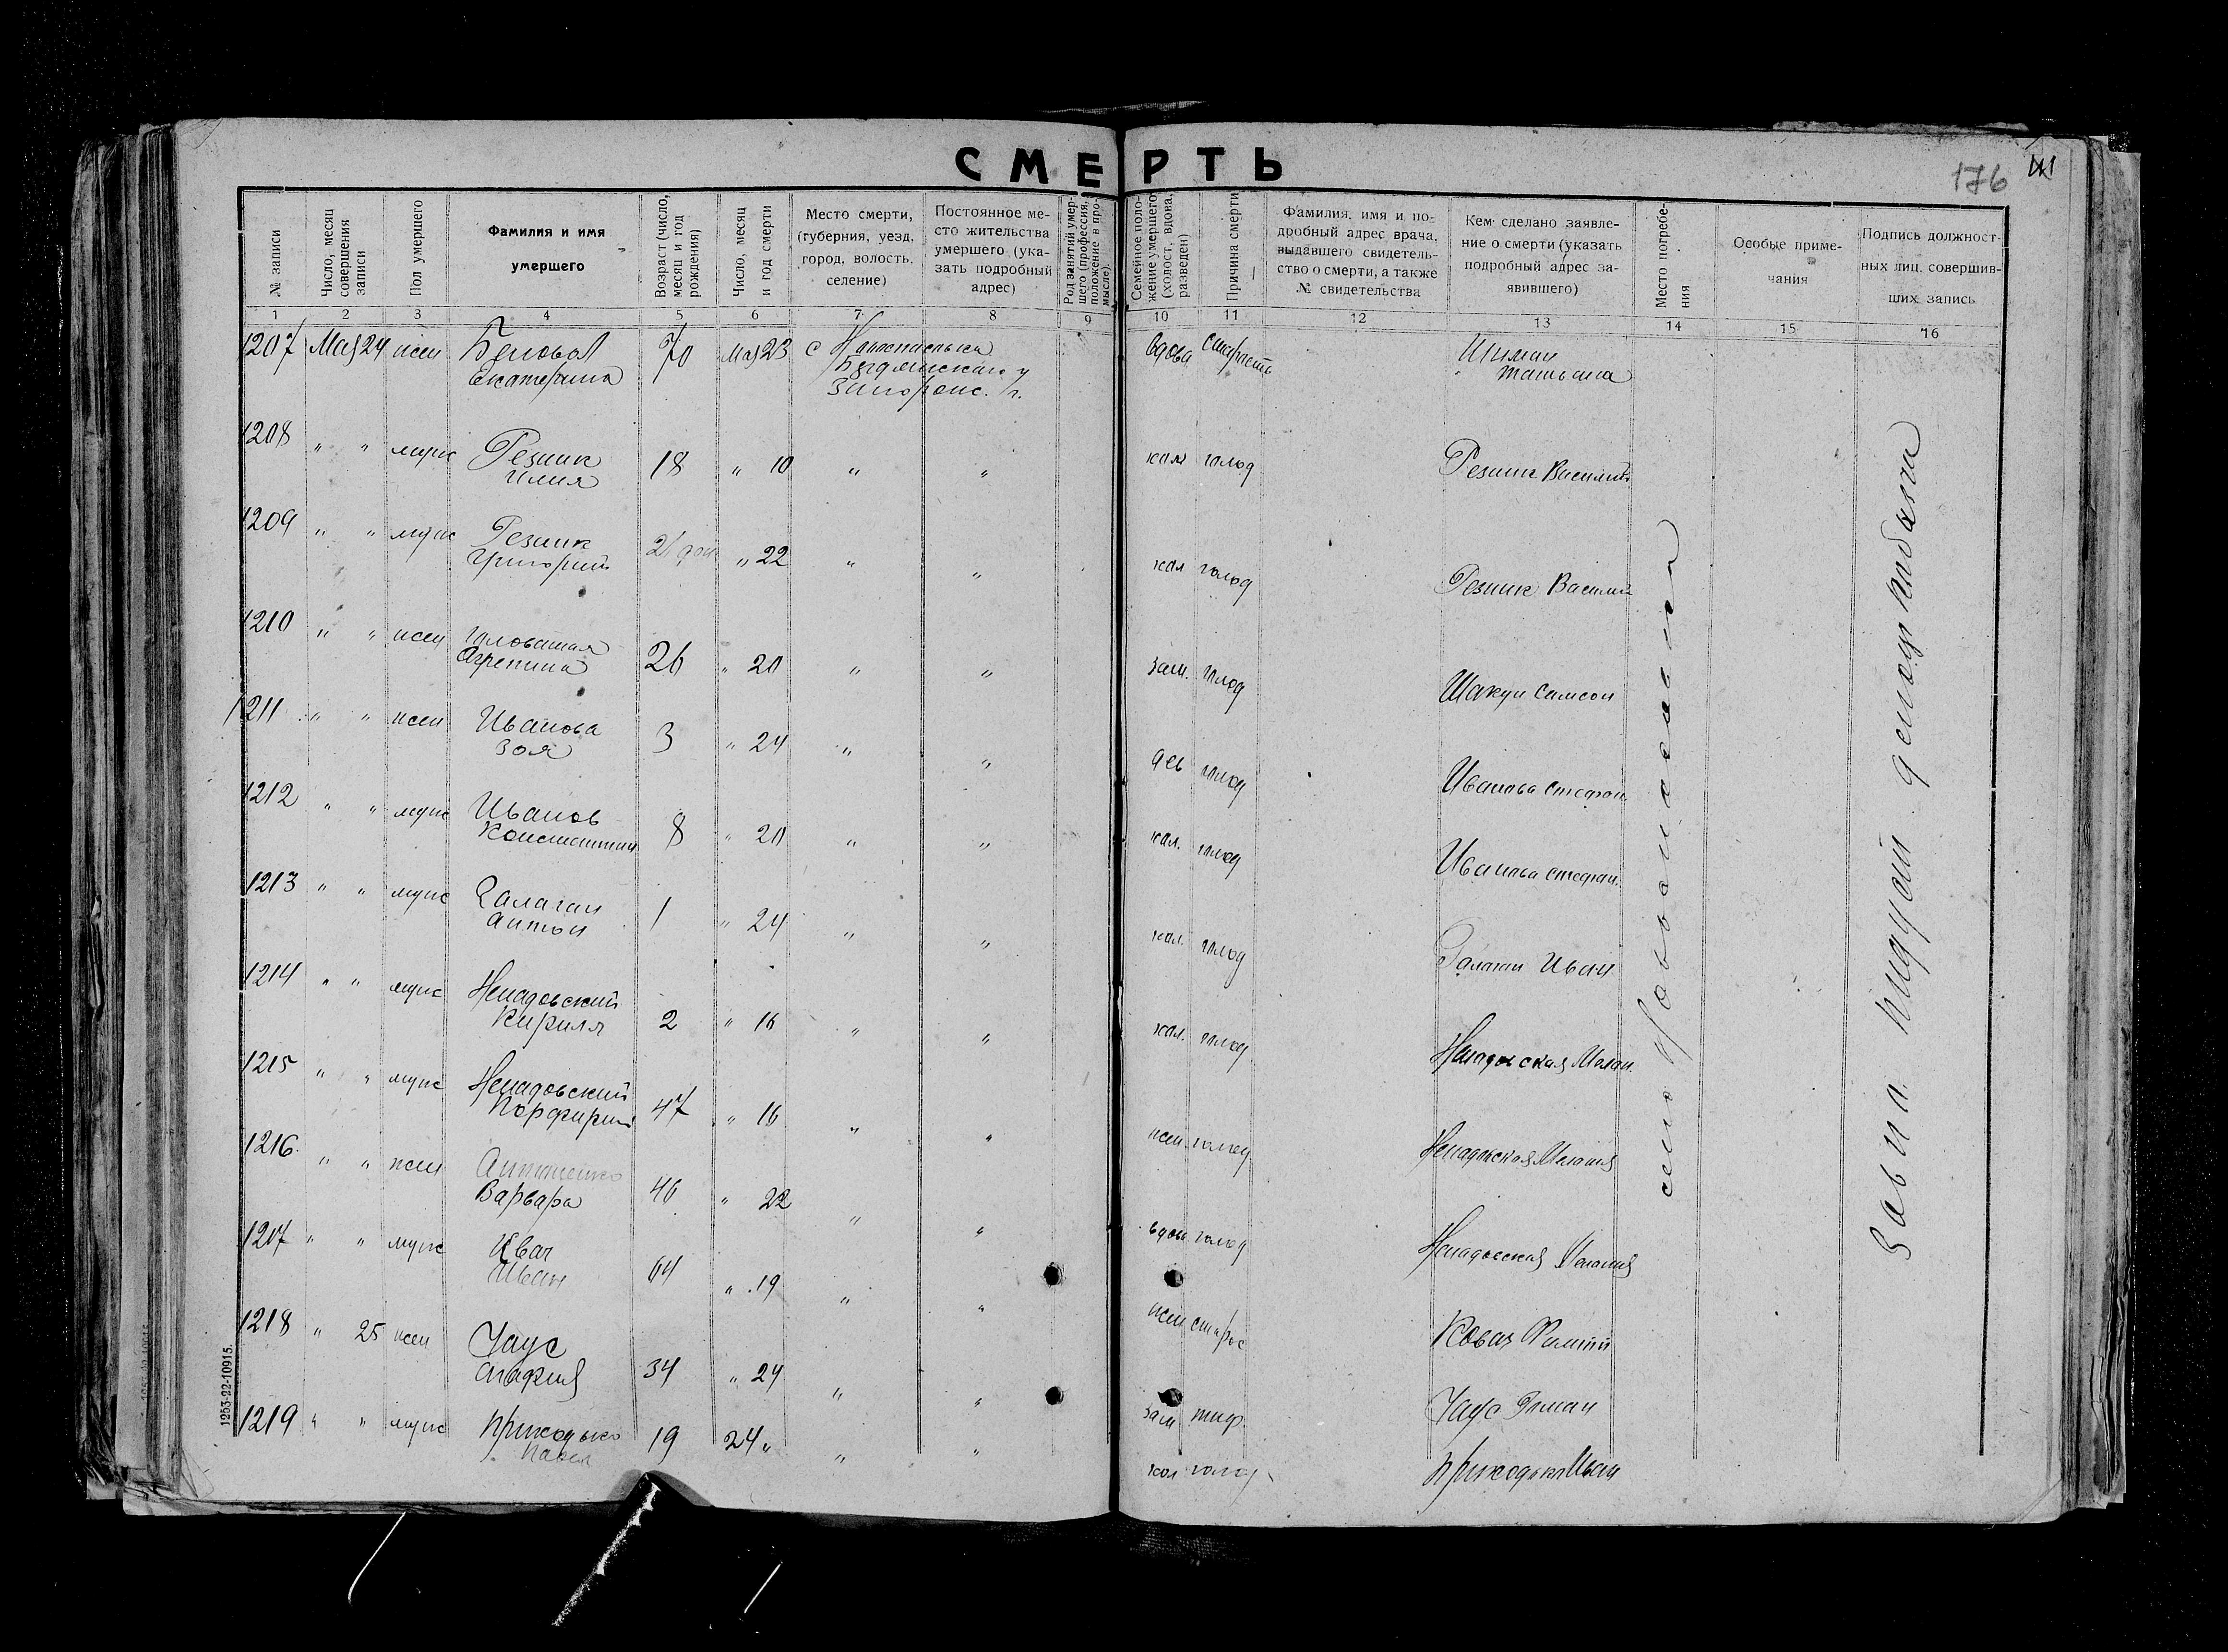 СМЕРТЬ
176
№ записи
Число, месяц совершения записи
Пол умершего
Фамилия и имя
умершего
Возраст (число, месяц и год рождения)
Число, месяц и год смерти
Место смерти, (губерния, уезд, город, волость, селение)
Постоянное место жительства умершего (указать подробный адрес)
Род занятий умершего (профессия, положение в промысле).
Семейное положение умершего (холост, вдова, разведен)
Причина смерти
Фамилия, имя и подробный адрес врача, выдавшего свидетельство о смерти, а также № свидетельства
Кем сделано заявление о смерти (указать подробный адрес заявившего)
Место погребения
Особые примечания
Подпись должностных лиц, совершивших запись
1 2 3 4 5 6 7 8 9 10 11 12 13 14 15 16
1207 Мая 24 жен Екатерина 70 Мая 23 с Новоспасовка вдова старость Татьяна
Бердянского у
Запорож. г.
1208 " " муж Резник Илия 18 " 10 " " хол голод Резник Василий
1209 " " муж Резник Григорий 21 " 22 " " хол голод Резник Василий
1210 " " жен Головатая Агрепина 26 " 20 " " зам. голод Шакун Самсон
1211 " " жен Иванова Зоя 3 " 24 " " дев голод Иванова Стефан.
1212 " " муж Иванов Константин 8 " 20 " " хол. голод Иванова Стефан.
1213 " " муж Галаган Антон 1 " 24 " " хол. голод Галаган Иван
1214 " " муж Ненадовский Кирилл 2 " 16 " " хол. голод Ненадовская Мелан.
1215 " " муж Ненадовский Порфирий 47 " 16 " " жен. голод Ненадовская Мелания
1216 " " жен Антоненко Варвара 46 " 22 " " вдова голод Ненадовская Мелания
1217 " " муж Иван 64 " 19 " " жен старос Ковач
1218 " 25 жен Чаус 34 " 24 " " зам тиф. Чаус Роман
1219 " " муж Приходько Павел 19 24 " " " хол голод Приходько Иван
село Новоспасовка
1253-22-10915.